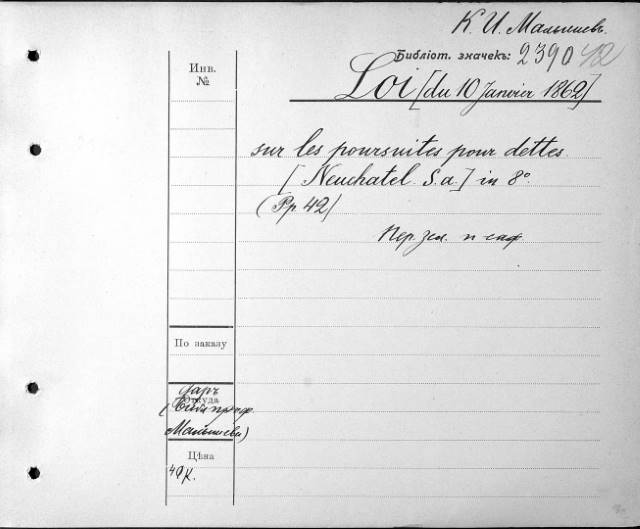 К. И. Малышевъ.
Библіот. значекъ: 2390 42
Инв.
№
Loi [du 10 Janvier 1862]
sur les poursuites pour dettes.
[Neuchatel. S. a.] in 8º.
(Pp. 42)
Пер. зел. п-саф.
По заказу
Откуда
даръ
(Библ. проф.
Малышева)
Цѣна
40 К.